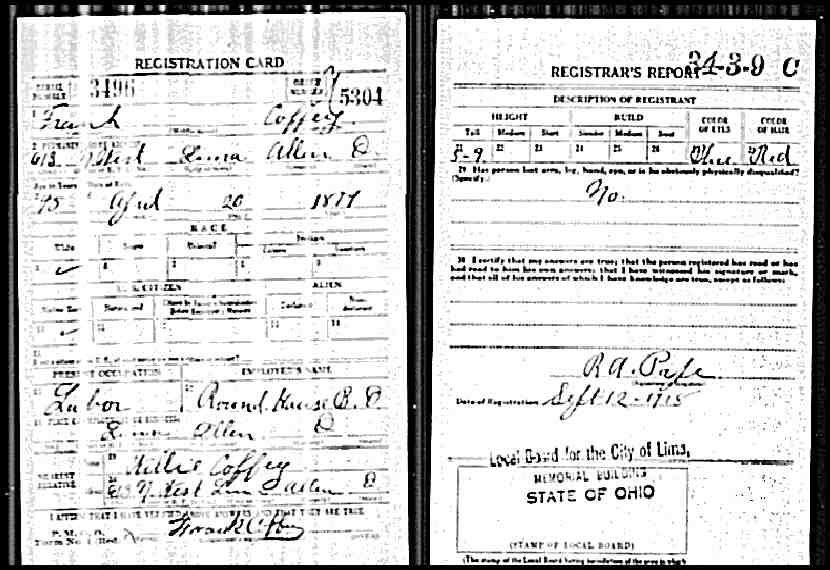 REGISTRATION CARD
SERIAL NUMBER 3496 ORDER NUMBER 5304
Frank Coffey
613 N West Lima Allen O
Age in Years Date of Birth
April 20
RACE
White Negro Oriental Indian
U. S. CITIZEN ALIEN
Native Born Naturalized
PRESENT OCCUPATION EMPLOYER'S NAME
Labor Round House B. O
Lima Allen O
NEAREST RELATIVE
Coffey
613 N West Lima Allen O
I AFFIRM THAT I HAVE VERIFIED ABOVE ANSWERS AND THAT THEY ARE TRUE
P. M. G. O.
Form No. 1 (Red)
Frank Coffey
REGISTRAR'S REPORT 34-3-9 C
DESCRIPTION OF REGISTRANT
HEIGHT BUILD COLOR OF EYES COLOR OF HAIR
Tall Medium Short Slender Medium Stout
21 22 23 24 25 26
5-9 Blue Red
29 Has person lost arm, leg, hand, eye, or is he obviously physically disqualified?
(Specify.)
No.
30 I certify that my answers are true; that the person registered has read or has
had read to him his own answers; that I have witnessed his signature or mark,
and that all of his answers of which I have knowledge are true, except as follows:
R. A.
Date of Registration Sept 12-
Local Board for the City of Lima,
MEMORIAL BUILDING
STATE OF OHIO
(STAMP OF LOCAL BOARD)
(The stamp of the Local Board having jurisdiction of the area in which